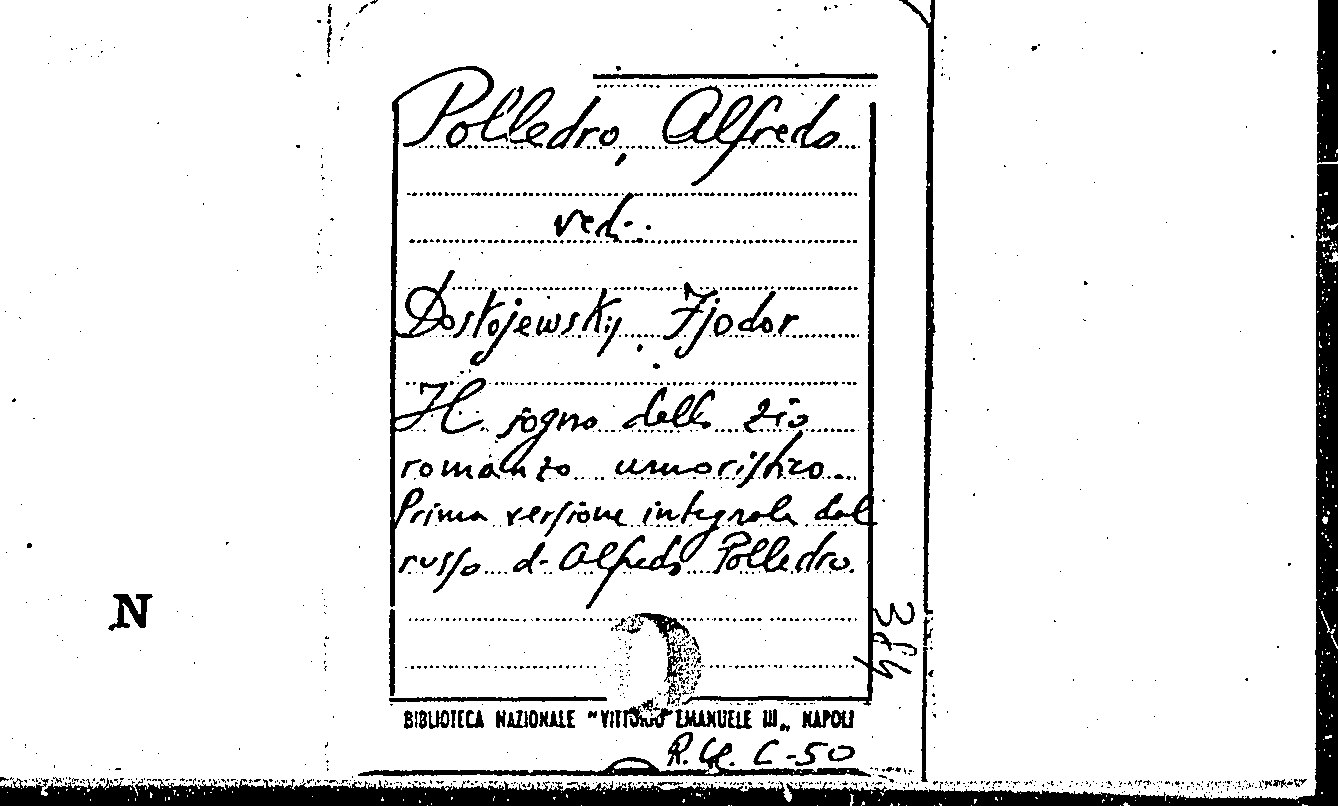 Polledro, Alfredo
vedi:
Dostojewskij, Fjodor
Il sogno dello zio
romanzo umoristico.
Prima versione integrale dal
russo di Alfredo Polledro.
N
384
BIBLIOTECA NAZIONALE "VITTORIO EMANUELE III" NAPOLI
C-50